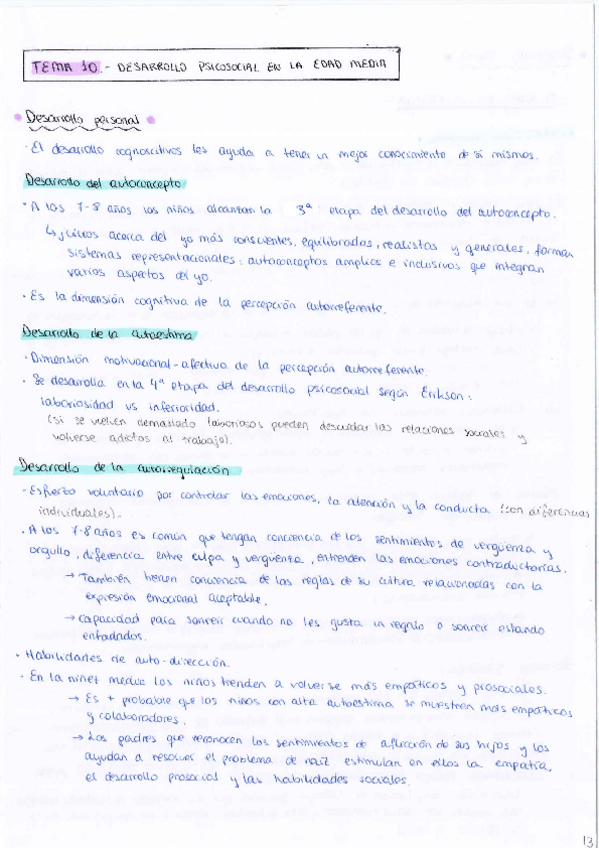 TEMA 10.- DESARROLLO PSICOSOCIAL EN LA EDAD MEDIA
Desarrollo personal
· El desarrollo cognoscitivos les ayuda a tener un mejor conocimiento de sí mismos.
Desarrollo del autoconcepto
· A los 7-8 años los niños alcanzan la 3ª etapa del desarrollo del autoconcepto.
↳ juicios acerca del yo más conscientes, equilibrados, realistas y generales, forman
sistemas representacionales: autoconceptos amplios e inclusivos que integran
varios aspectos del yo.
· Es la dimensión cognitiva de la percepción autorreferente.
Desarrollo de la autoestima
· Dimensión motivacional-afectiva de la percepción autorreferente.
· Se desarrolla en la 4ª etapa del desarrollo psicosocial según Erikson:
laboriosidad vs inferioridad.
(si se vuelven demasiado laboriosos pueden descuidar las relaciones sociales y
volverse adictos al trabajo).
Desarrollo de la autorregulación
· Esfuerzo voluntario por controlar las emociones, la atención y la conducta (con diferencias
individuales).
· A los 7-8 años es común que tengan conciencia de los sentimientos de vergüenza y
orgullo, diferencia entre culpa y vergüenza, entienden las emociones contradictorias.
→ También tienen conciencia de las reglas de su cultura relacionadas con la
expresión emocional aceptable.
→ capacidad para sonreir cuando no les gusta un regalo o sonreir estando
enfadados.
· Habilidades de auto-dirección.
· En la niñez media los niños tienden a volverse más empáticos y prosociales.
→ Es + probable que los niños con alta autoestima se muestren más empáticos
y colaboradores.
→ Los padres que reconocen los sentimientos de aflicción de sus hijos y los
ayudan a resolver el problema de raíz estimulan en ellos la empatía,
el desarrollo prosocial y las habilidades sociales.
13